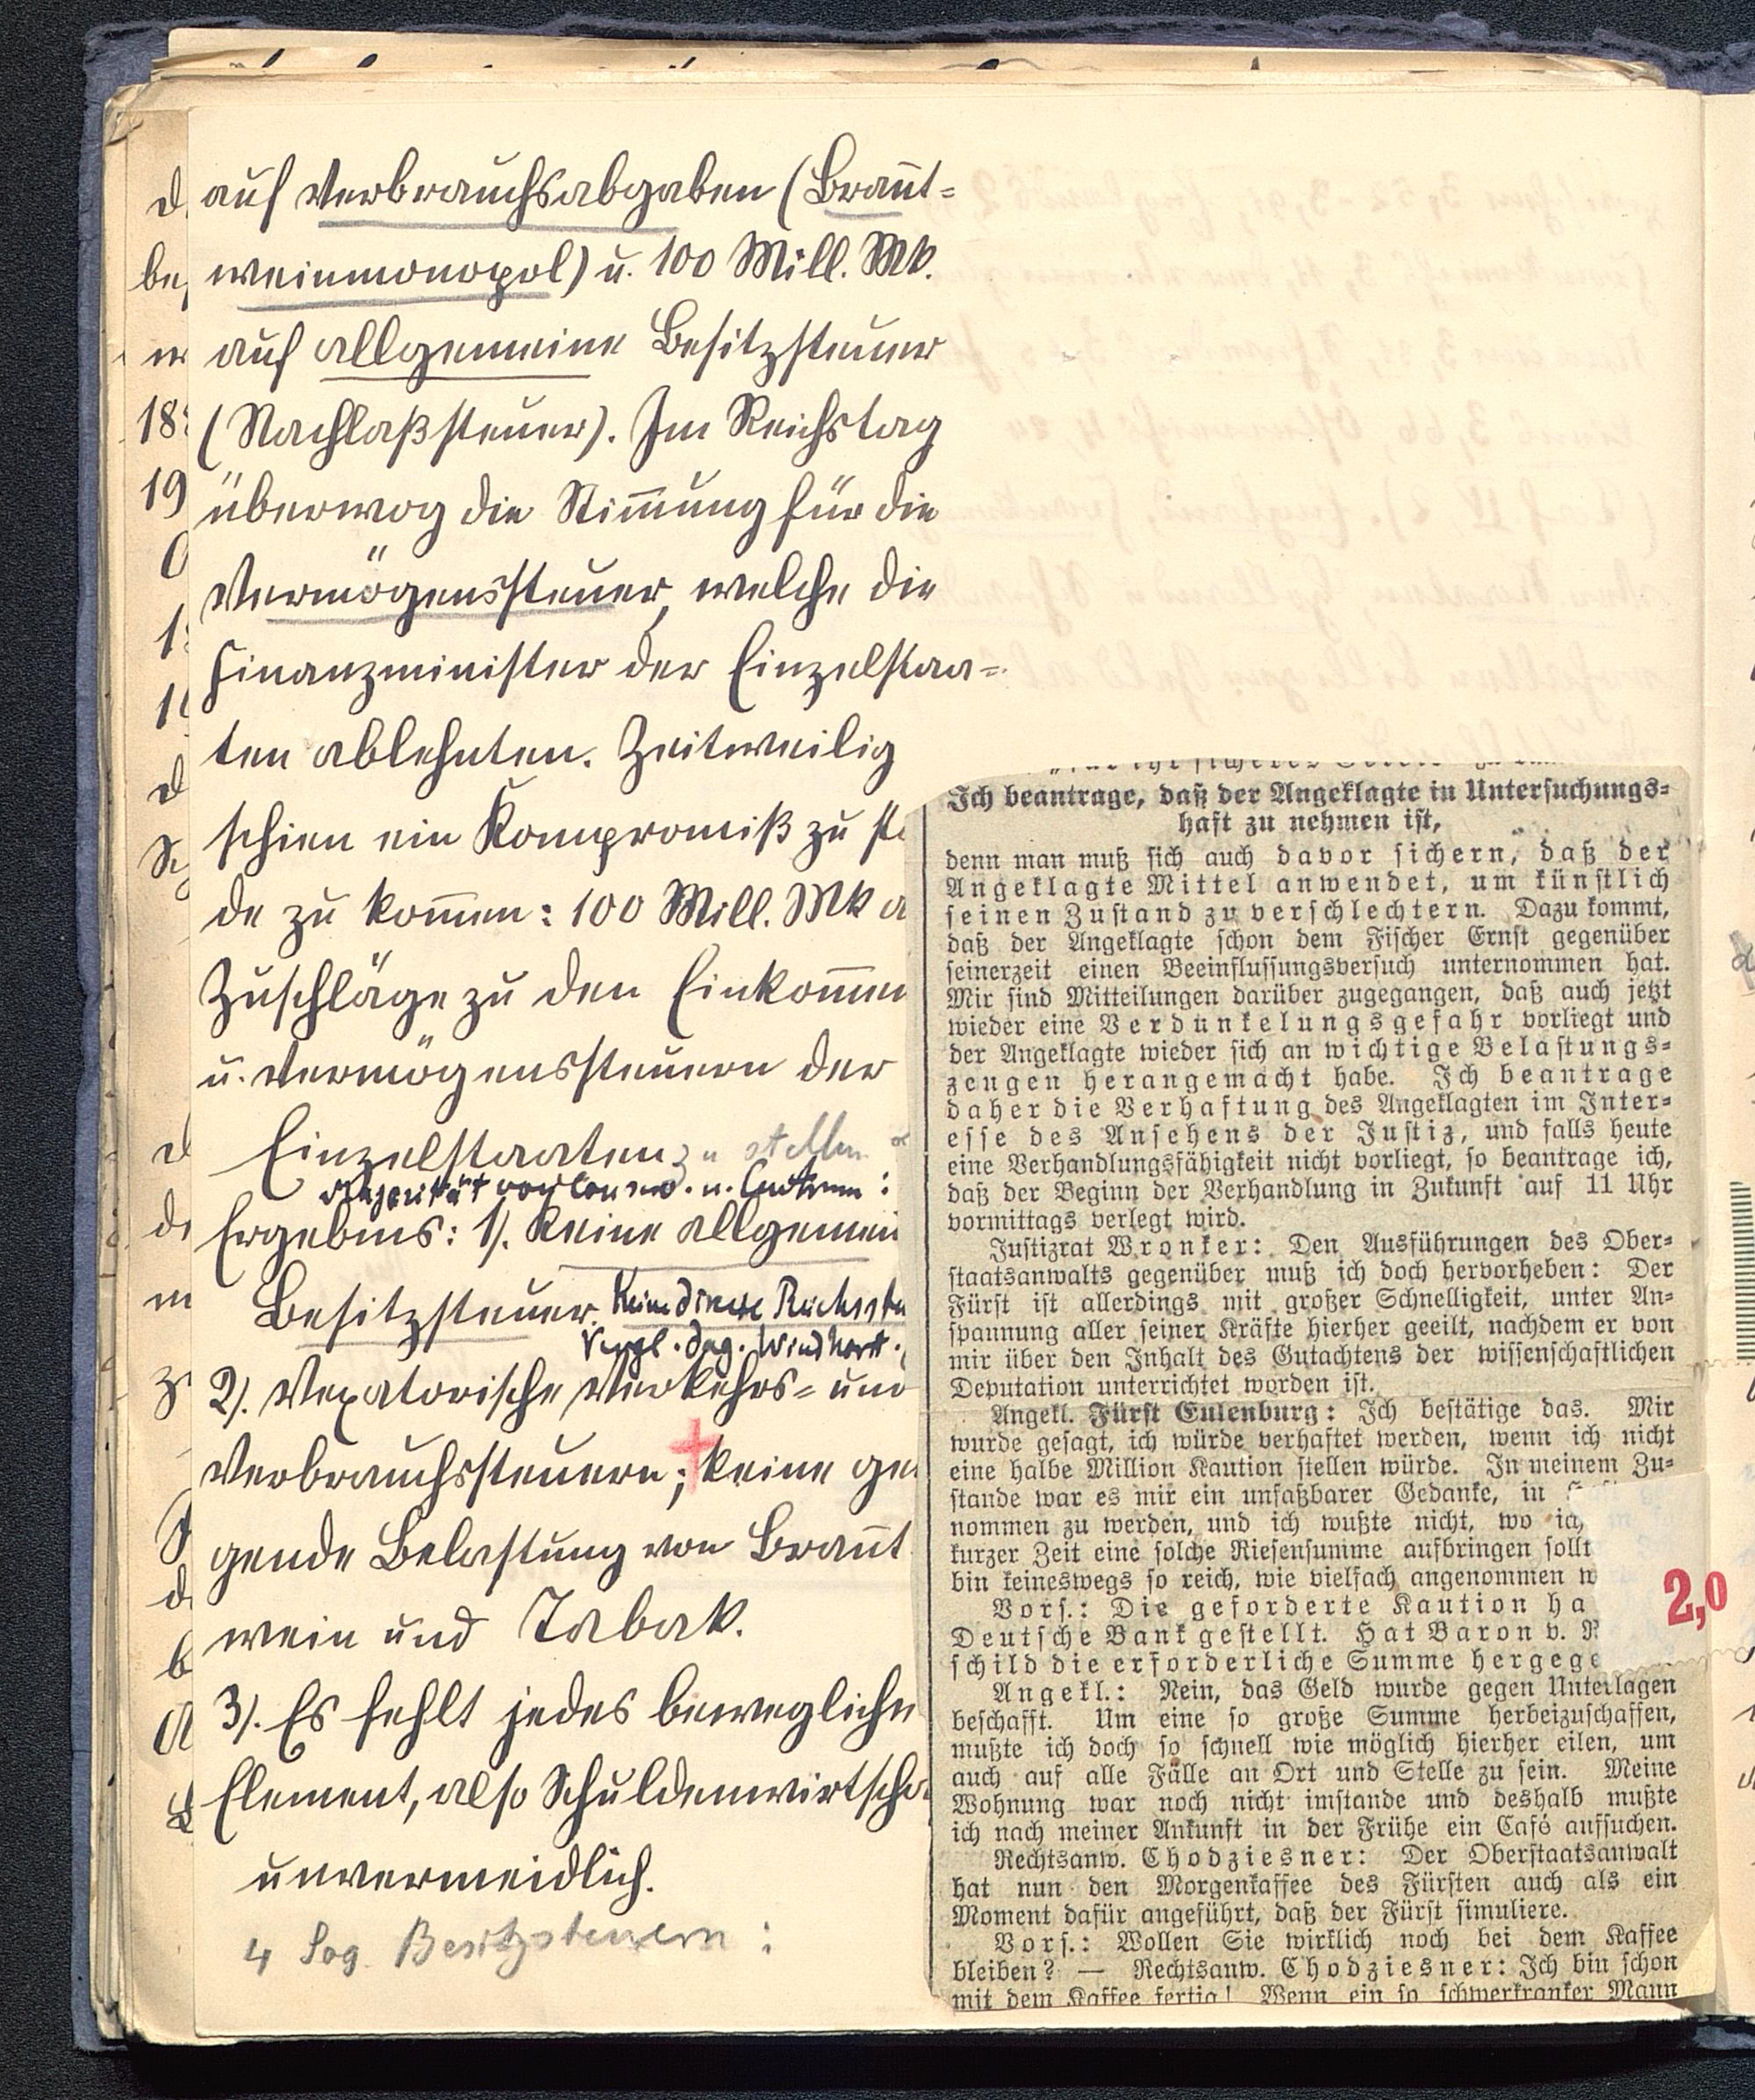 auf Verbrauchsabgaben (Brannt-
weinmonopol) u. 100 Mill. Mk.
auf allgemeine Besitzsteuer
(Nachlaßsteuer). Im Reichstag
überwog die Stimmung für die
Vermögenssteuer, welche die
Finanzminister der Einzelstaa-
ten ablehnten. Zeitweilig
schien ein Kompromiß zu
de zu kommen: 100 Mill. Mk
Zuschläge zu den Einkommen
u. Vermögenssteuern der
Einzelstaaten zu stellen
Majorität u. Centrum:
Ergebnis: 1). Keine allgemein
Besitzsteuer. Keine direkte Reichsste
Vergl. dag. Windhorst.
2). Vexatorische Verkehrs- und
Verbrauchssteuern; keine ge
gende Belastung von Brannt
wein und Tabak.
3). Es fehlt jedes bewegliche
Element, also Schuldenwirtscha
unvermeidlich.
4 Sog. Besitzsteuern:
Ich beantrage, daß der Angeklagte in Untersuchungs-
haft zu nehmen ist,
denn man muß sich auch davor sichern, daß der
Angeklagte Mittel anwendet, um künstlich
seinen Zustand zu verschlechtern. Dazu kommt,
daß der Angeklagte schon dem Fischer Ernst gegenüber
seinerzeit einen Beeinflussungsversuch unternommen hat.
Mir sind Mitteilungen darüber zugegangen, daß auch jetzt
wieder eine Verdunkelungsgefahr vorliegt und
der Angeklagte wieder sich an wichtige Belastungs-
zeugen herangemacht habe. Ich beantrage
daher die Verhaftung des Angeklagten im Inter-
esse des Ansehens der Justiz, und falls heute
eine Verhandlungsfähigkeit nicht vorliegt, so beantrage ich,
daß der Beginn der Verhandlung in Zukunft auf 11 Uhr
vormittags verlegt wird.
Justizrat Wronker: Den Ausführungen des Ober-
staatsanwalts gegenüber muß ich doch hervorheben: Der
Fürst ist allerdings mit großer Schnelligkeit, unter An-
spannung aller seiner Kräfte hierher geeilt, nachdem er von
mir über den Inhalt des Gutachtens der wissenschaftlichen
Deputation unterrichtet worden ist.
Angekl. Fürst Eulenburg: Ich bestätige das. Mir
wurde gesagt, ich würde verhaftet werden, wenn ich nicht
eine halbe Million Kaution stellen würde. In meinem Zu-
stande war es mir ein unfaßbarer Gedanke, in
nommen zu werden, und ich wußte nicht, wo ich
kurzer Zeit eine solche Riesensumme aufbringen sollt
bin keineswegs so reich, wie vielfach angenommen w
Vors.: Die geforderte Kaution ha
Deutsche Bank gestellt. Hat Baron v. R
schild die erforderliche Summe hergege
Angekl.: Nein, das Geld wurde gegen Unterlagen
beschafft. Um eine so große Summe herbeizuschaffen,
mußte ich doch so schnell wie möglich hierher eilen, um
auch auf alle Fälle an Ort und Stelle zu sein. Meine
Wohnung war noch nicht imstande und deshalb mußte
ich nach meiner Ankunft in der Frühe ein Café aufsuchen.
Rechtsanw. Chodziesner: Der Oberstaatsanwalt
hat nun den Morgenkaffee des Fürsten auch als ein
Moment dafür angeführt, daß der Fürst simuliere.
Vors.: Wollen Sie wirklich noch bei dem Kaffee
bleiben? — Rechtsanw. Chodziesner: Ich bin schon
mit dem Kaffee fertig! Wenn ein so schwerkranker Mann
2,0